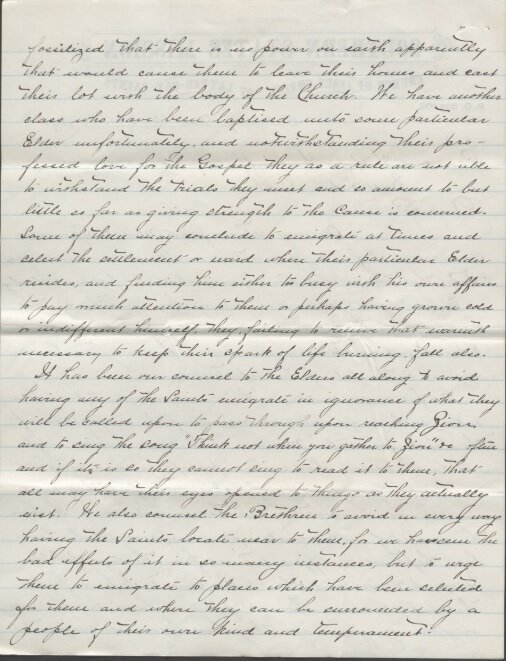 fossilized that there is no power on earth apparently
that would cause them to leave their homes and cast
their lot with the body of the Church. We have another
class who have been baptised into some particular
Elder unfortunately, and notwithstanding their pro-
fessed love for the Gospel they as a rule are not able
to withstand the trials they meet and so amount to but
little so far as giving strength to the Cause is concerned.
Some of them may conclude to emigrate at times and
select the settlement or ward where their particular Elder
resides, and finding him either to busy with his own affairs
to pay much attention to them or perhaps having grown cold
or indifferent himself they, failing to receive that warmth
necessary to keep their spark of life burning, fall also.
It has been our counsel to the Elders all along to avoid
having any of the Saints emigrate in ignorance of what they
will be called upon to pass through upon reaching Zion,
and to sing the song "Think not when you gather to Zion" &c often
and if it is so they cannot sing to read it to them, that
all may have their eyes opened to things as they actually
exist. We also counsel the Brethren to avoid in every way
having the Saints locate near to them, for we have seen the
bad effects of it in so many instances, but to urge
them to emigrate to places which have been selected
for them and where they can be surrounded by a
people of their own kind and temperament.